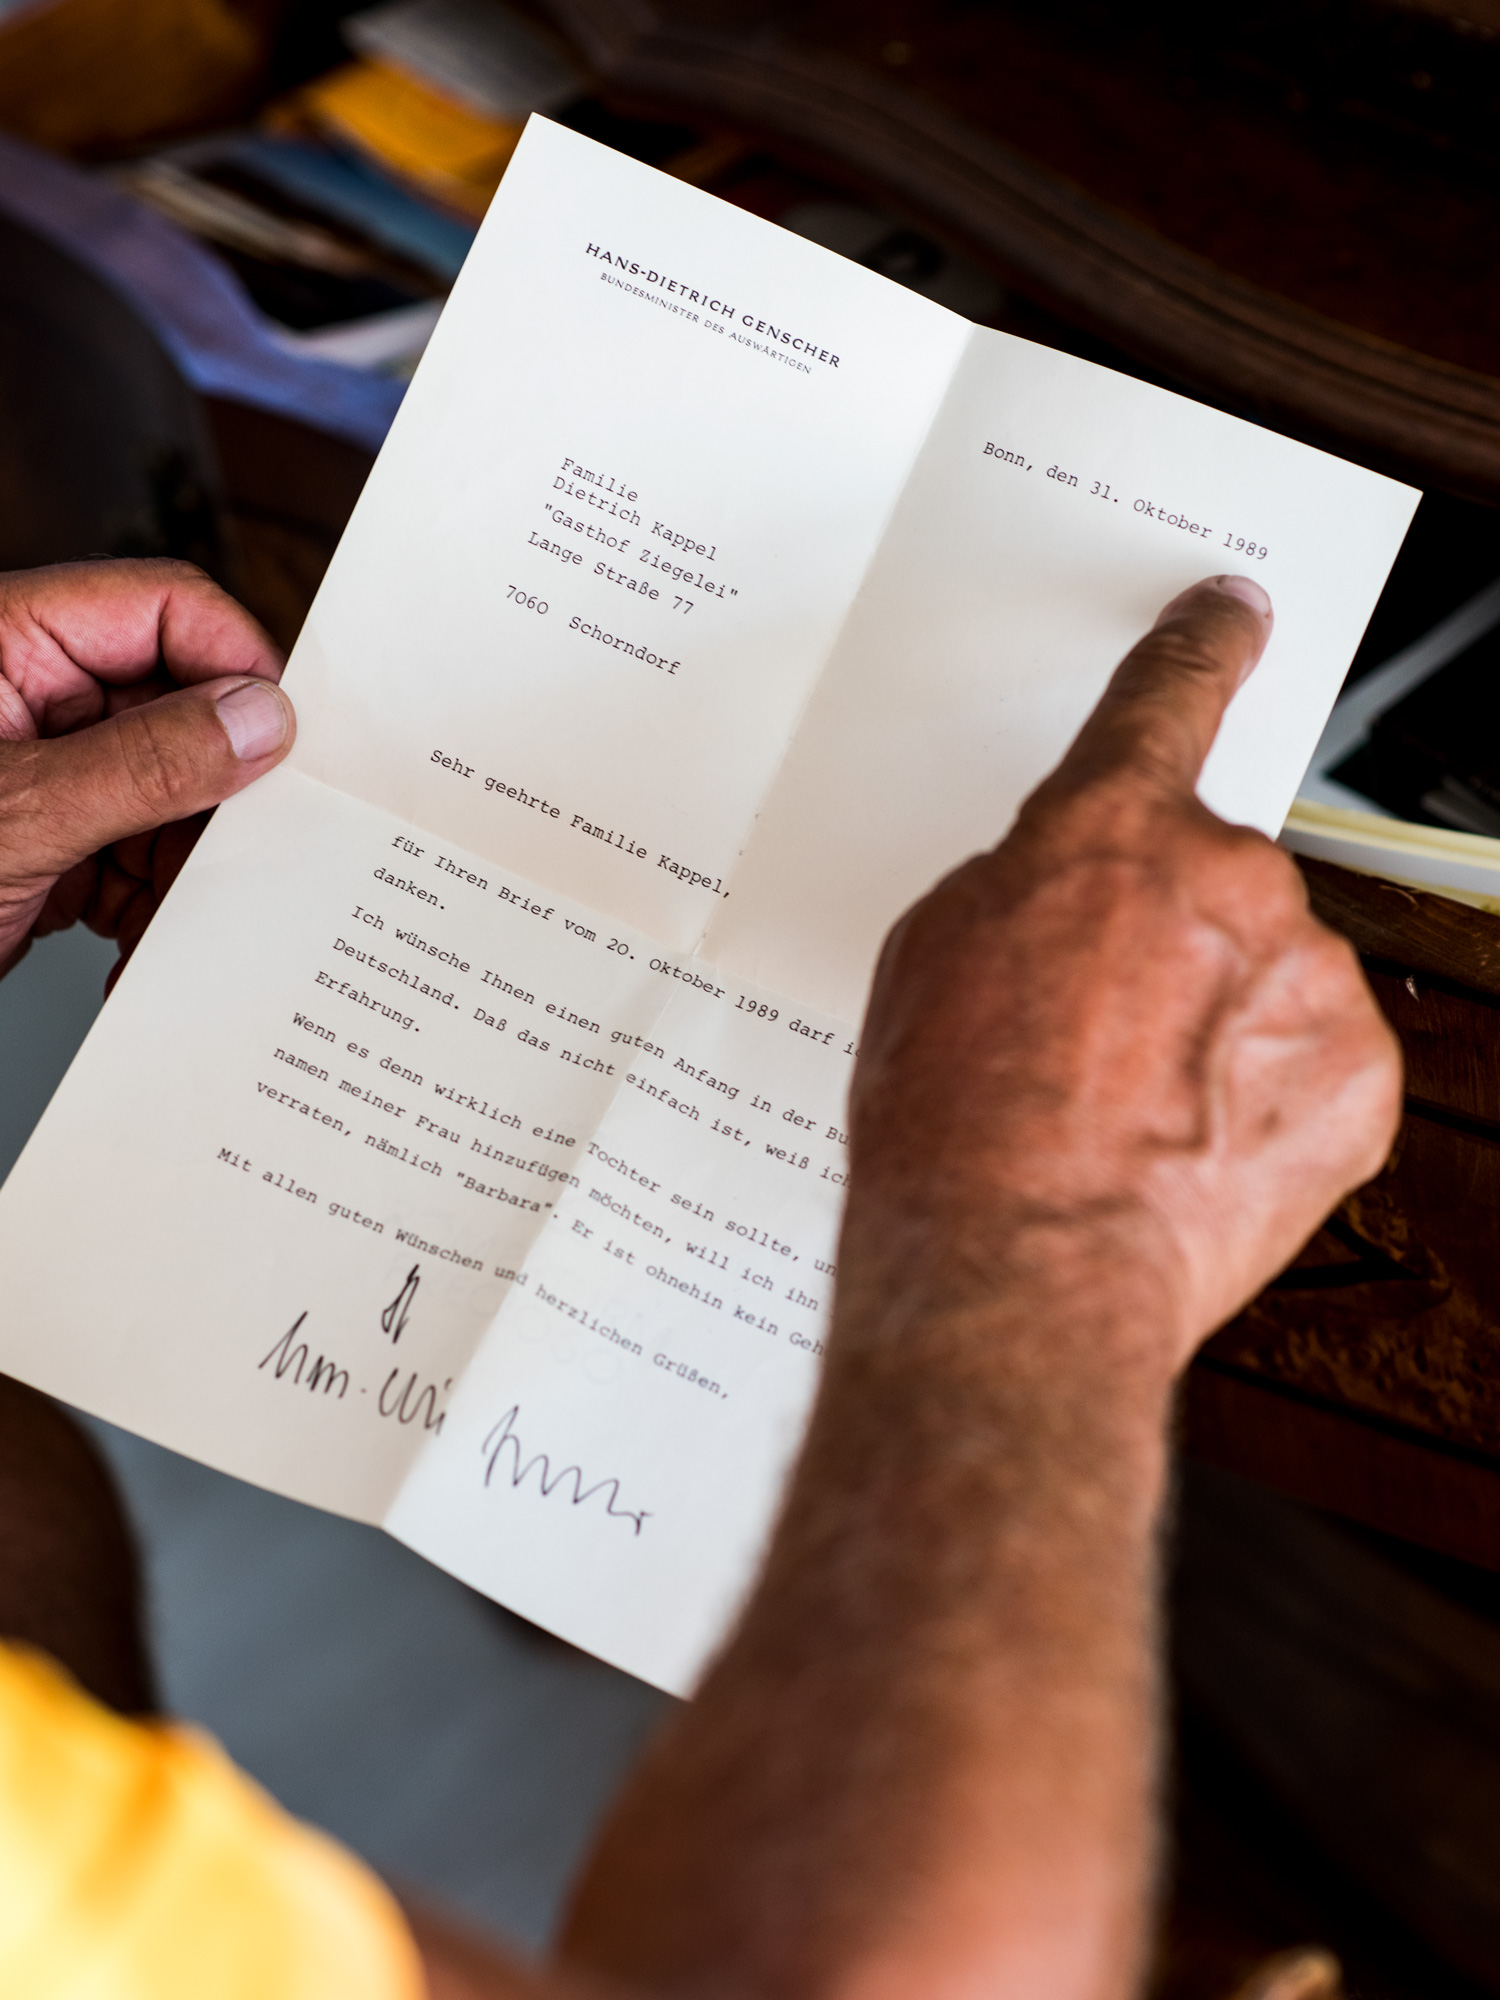 HANS-DIETRICH GENSCHER
BUNDESMINISTER DES AUSWÄRTIGEN
Bonn, den 31. Oktober 1989
Familie
Dietrich Kappel
"Gasthof Ziegelei"
Lange Straße 77
7060 Schorndorf
Sehr geehrte Familie Kappel,
für Ihren Brief vom 20. Oktober 1989 darf
danken.
Ich wünsche Ihnen einen guten Anfang in der
Deutschland. Daß das nicht einfach ist, weiß ich
Erfahrung.
Wenn es denn wirklich eine Tochter sein sollte,
namen meiner Frau hinzufügen möchten, will ich ihn
verraten, nämlich "Barbara". Er ist ohnehin kein
Mit allen guten Wünschen und herzlichen Grüßen,